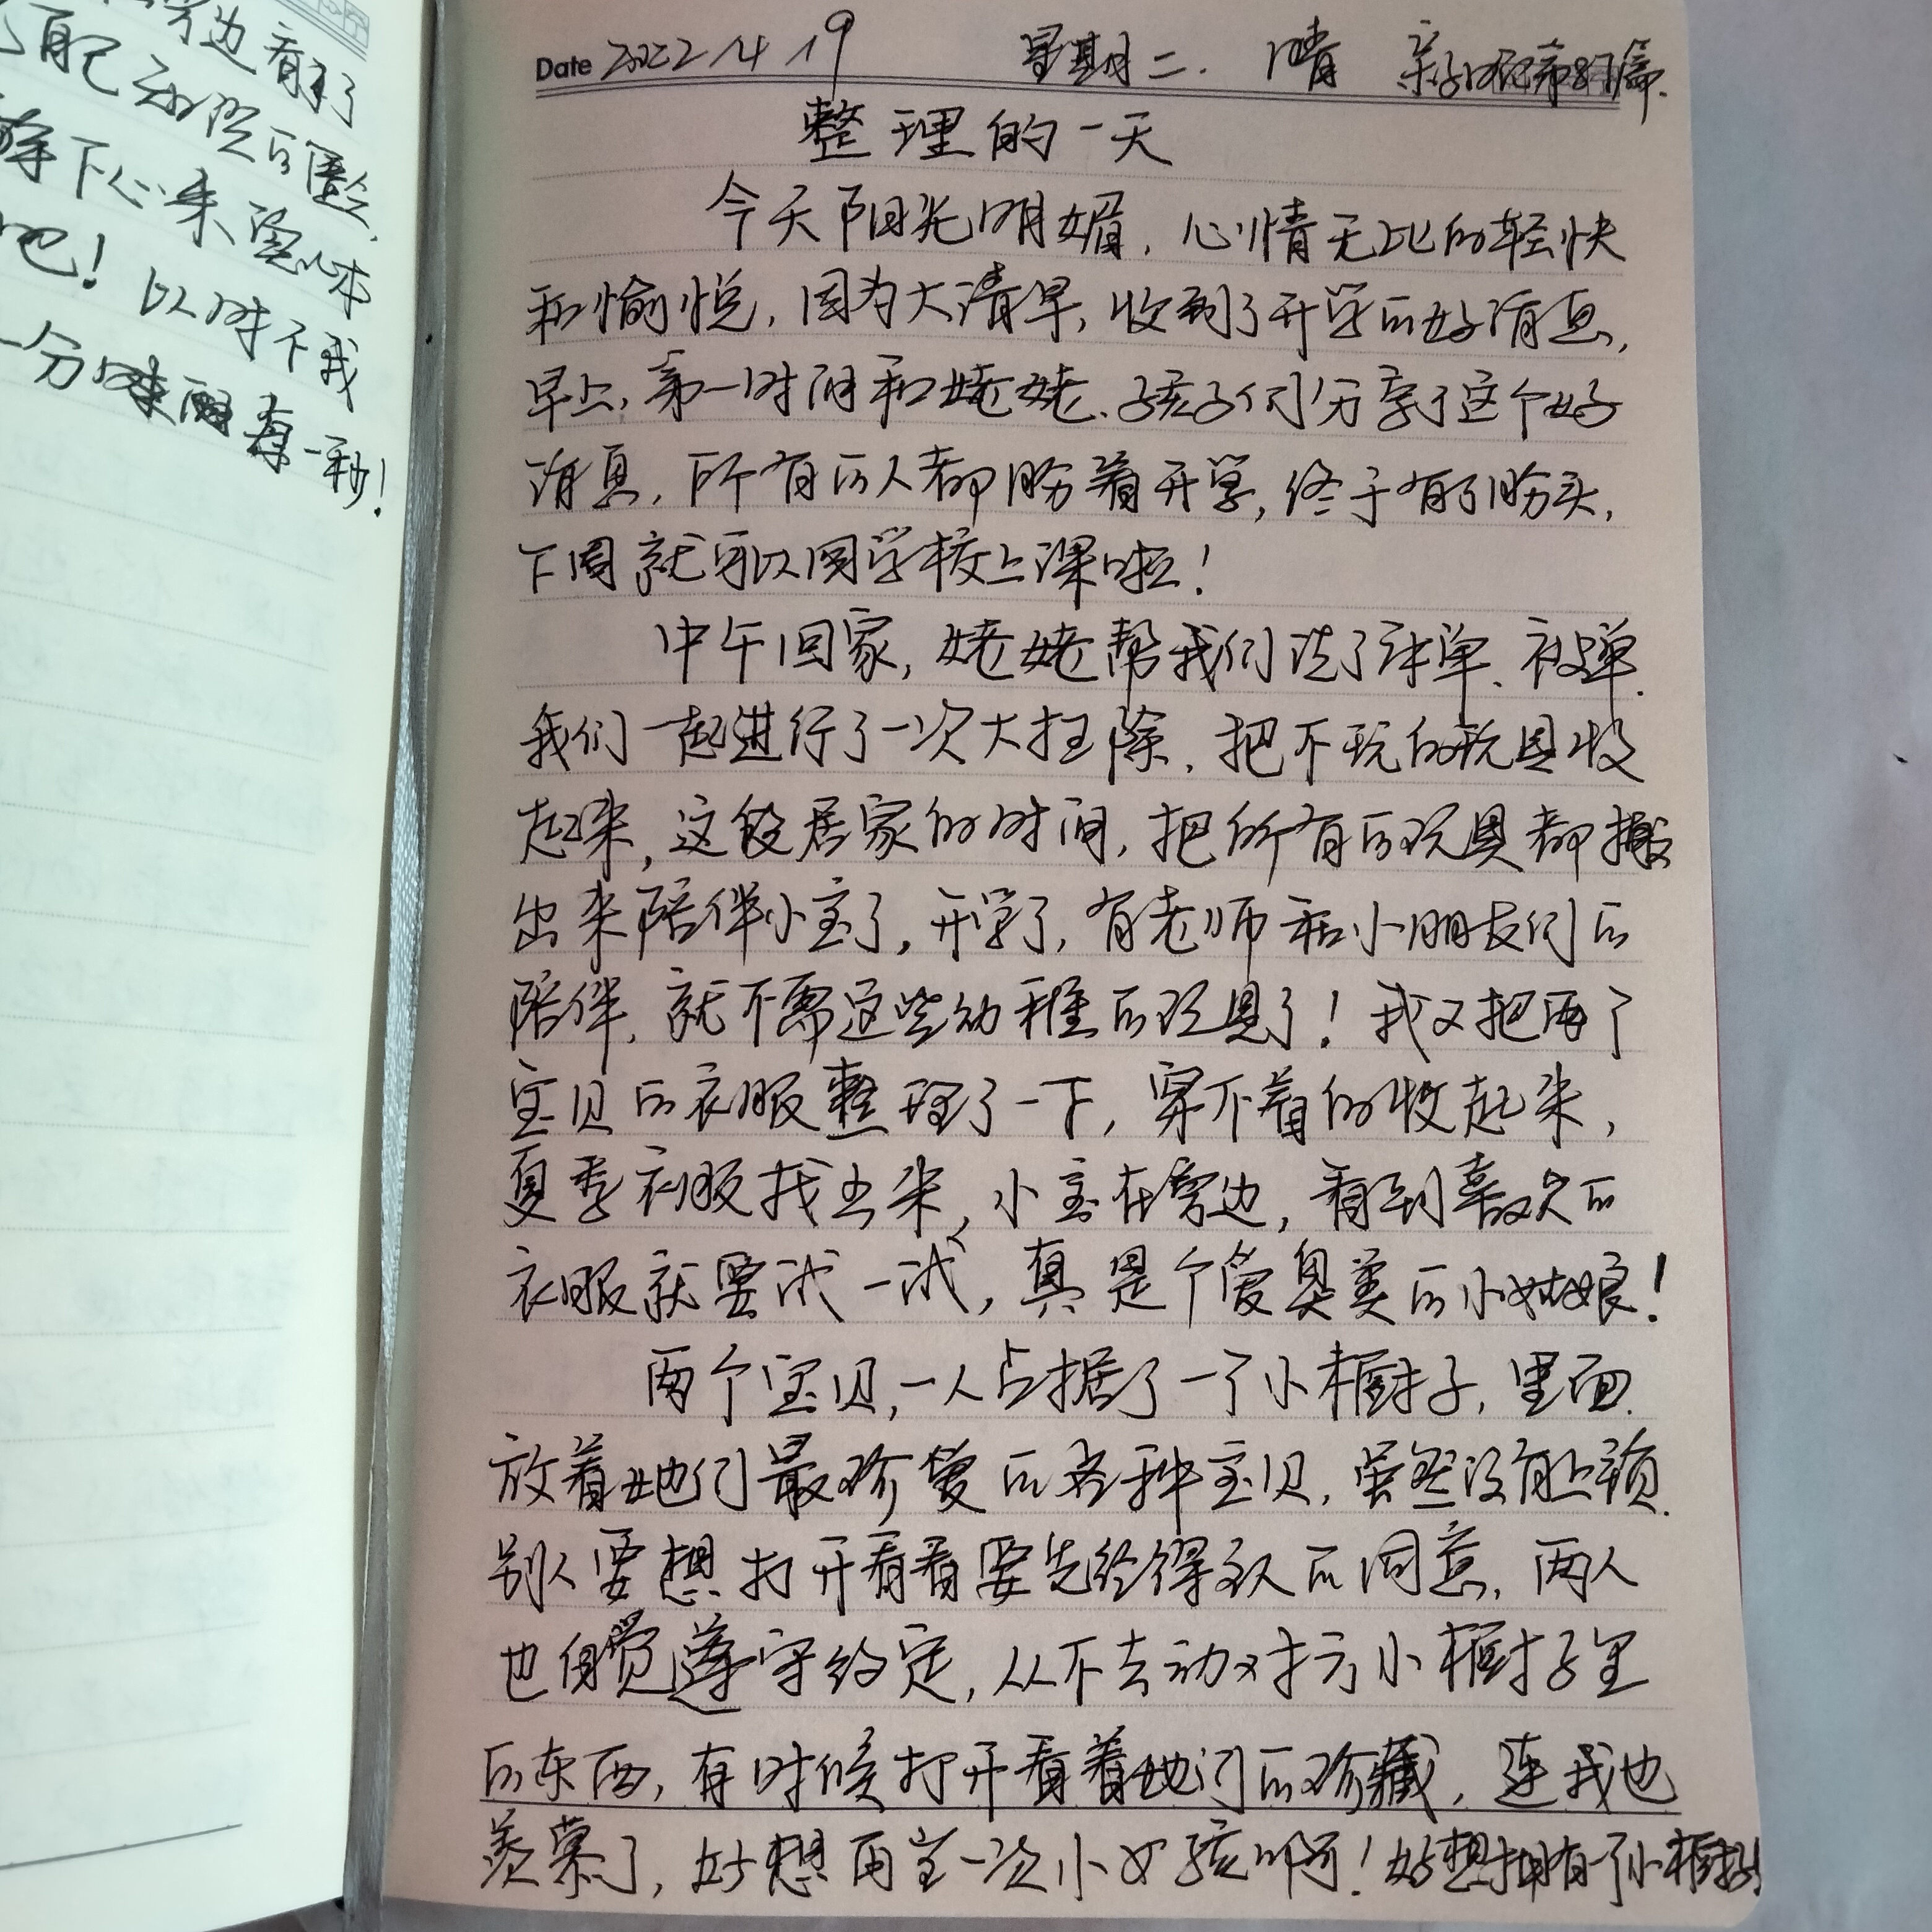 旁边看了
自己
静下心来
吧！以时不我
一分
一秒！
Date 2022/4/19 星期二. 晴 亲子日记第87篇.
整理的一天
今天阳光明媚，心情无比的轻快
和愉悦，因为大清早，收到了开学的好消息，
早上，第一时间和姥姥、孩子们分享了这个好
消息，所有的人都盼着开学，终于有了盼头，
下周就可以回学校上课啦！
中午回家，姥姥帮我们洗了床单、被单
我们一起进行了一次大扫除，把不玩的玩具收
起来，这段居家的时间，把所有的玩具都搬
出来陪伴小宝了，开学了，有老师和小朋友们的
陪伴，就不需这些幼稚的玩具了！我又把两个
宝贝的衣服整理了一下，穿不着的收起来，
夏季衣服找出来，小宝在旁边，看到喜欢的
衣服就要试一试，真是个爱臭美的小姑娘！
两个宝贝，一人占据了一个小橱子，里面
放着她们最珍爱的各种宝贝，虽然没有上锁
别人要想打开看看要先经得主人的同意，两人
也自觉遵守约定，从不去动对方小橱子里
的东西，有时候打开看着她们的珍藏，连我也
羡慕了，好想再当一次小女孩啊！好想拥有一个小橱子！